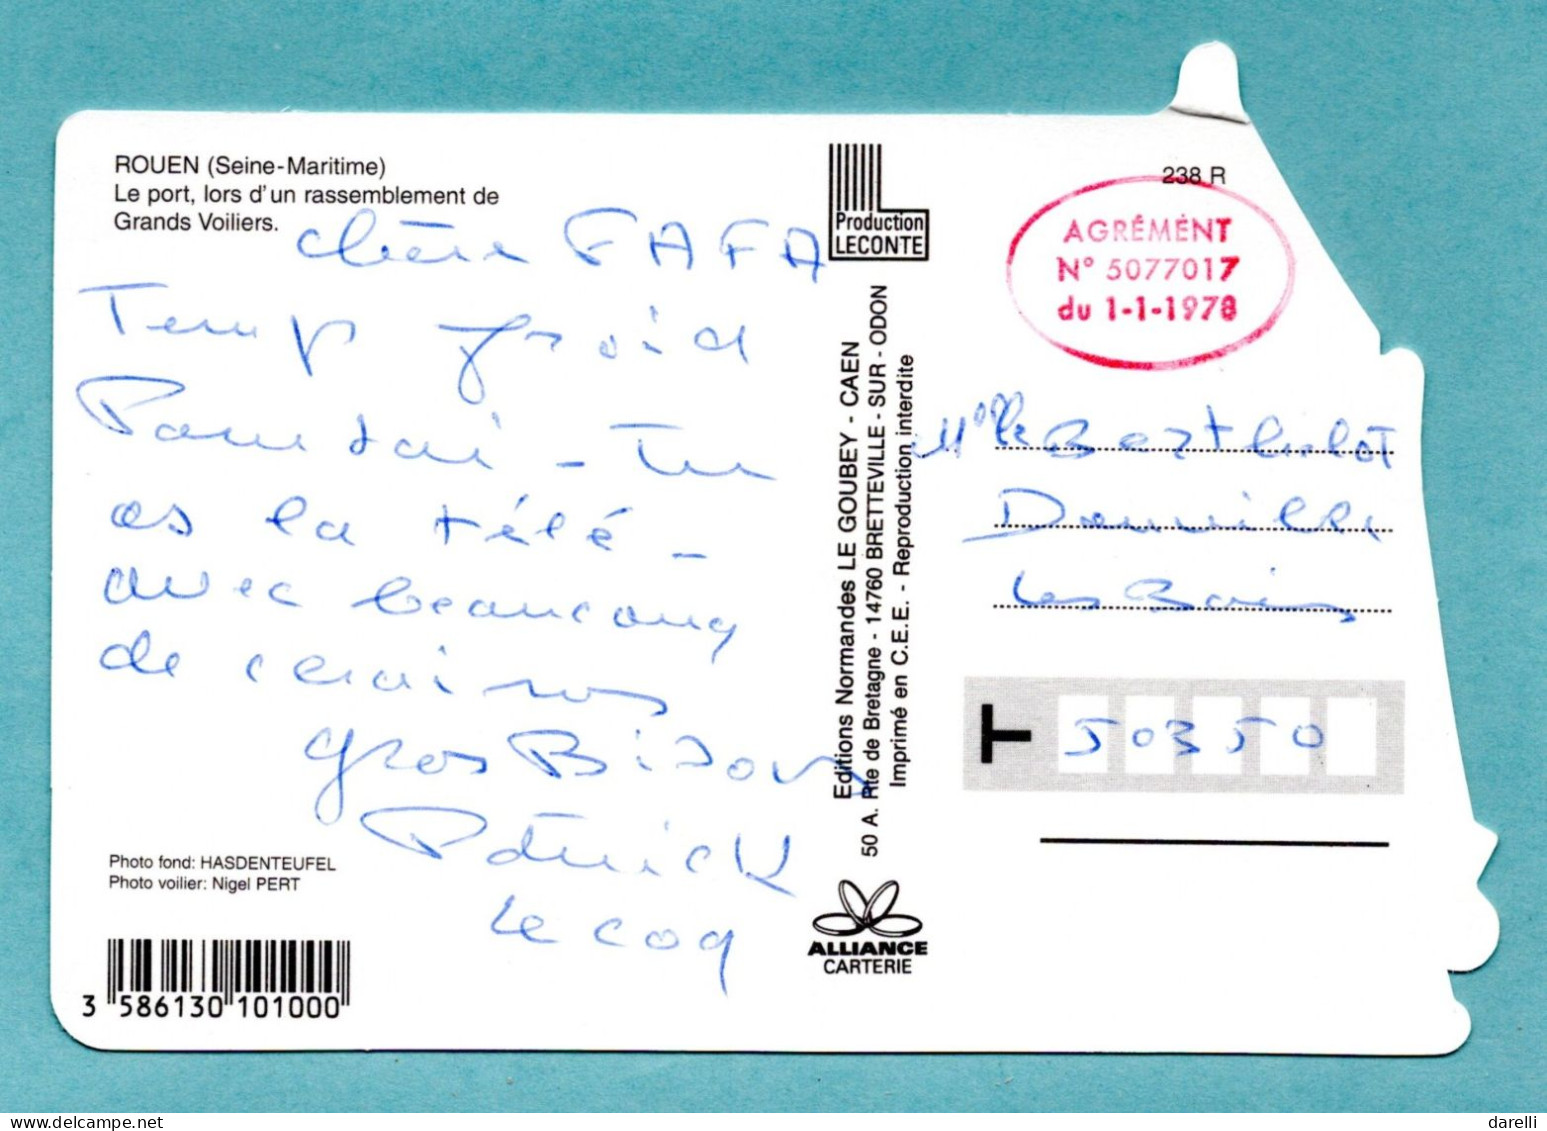 ROUEN (Seine-Maritime)
Le port, lors d'un rassemblement de
Grands Voiliers.
chère FAFA
Temp froid
Pour toi - Tu
as la télé -
avec beaucoup
de
gros Bisous
Patrick
Le coq
Photo fond: HASDENTEUFEL
Photo voilier: Nigel PERT
3 586130 101000
Production
LECONTE
Editions Normandes LE GOUBEY - CAEN
50 A. Rte de Bretagne - 14760 BRETTEVILLE - SUR - ODON
Imprimé en C.E.E. - Reproduction interdite
ALLIANCE
CARTERIE
238 R
AGRÉMENT
N° 5077017
du 1-1-1978
Melle Berthelot
Donville
Les Bains
T 50350
darelli